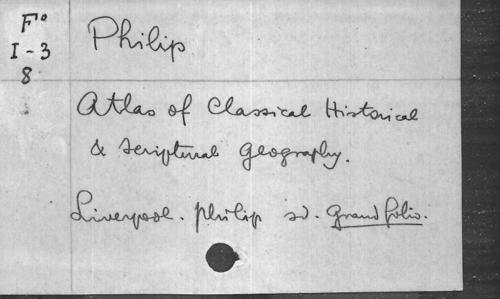 F°
I-3
8
Philip
Atlas of Classical Historical
& Scriptural Geography.
Liverpool. Philip sd. Grand folio.